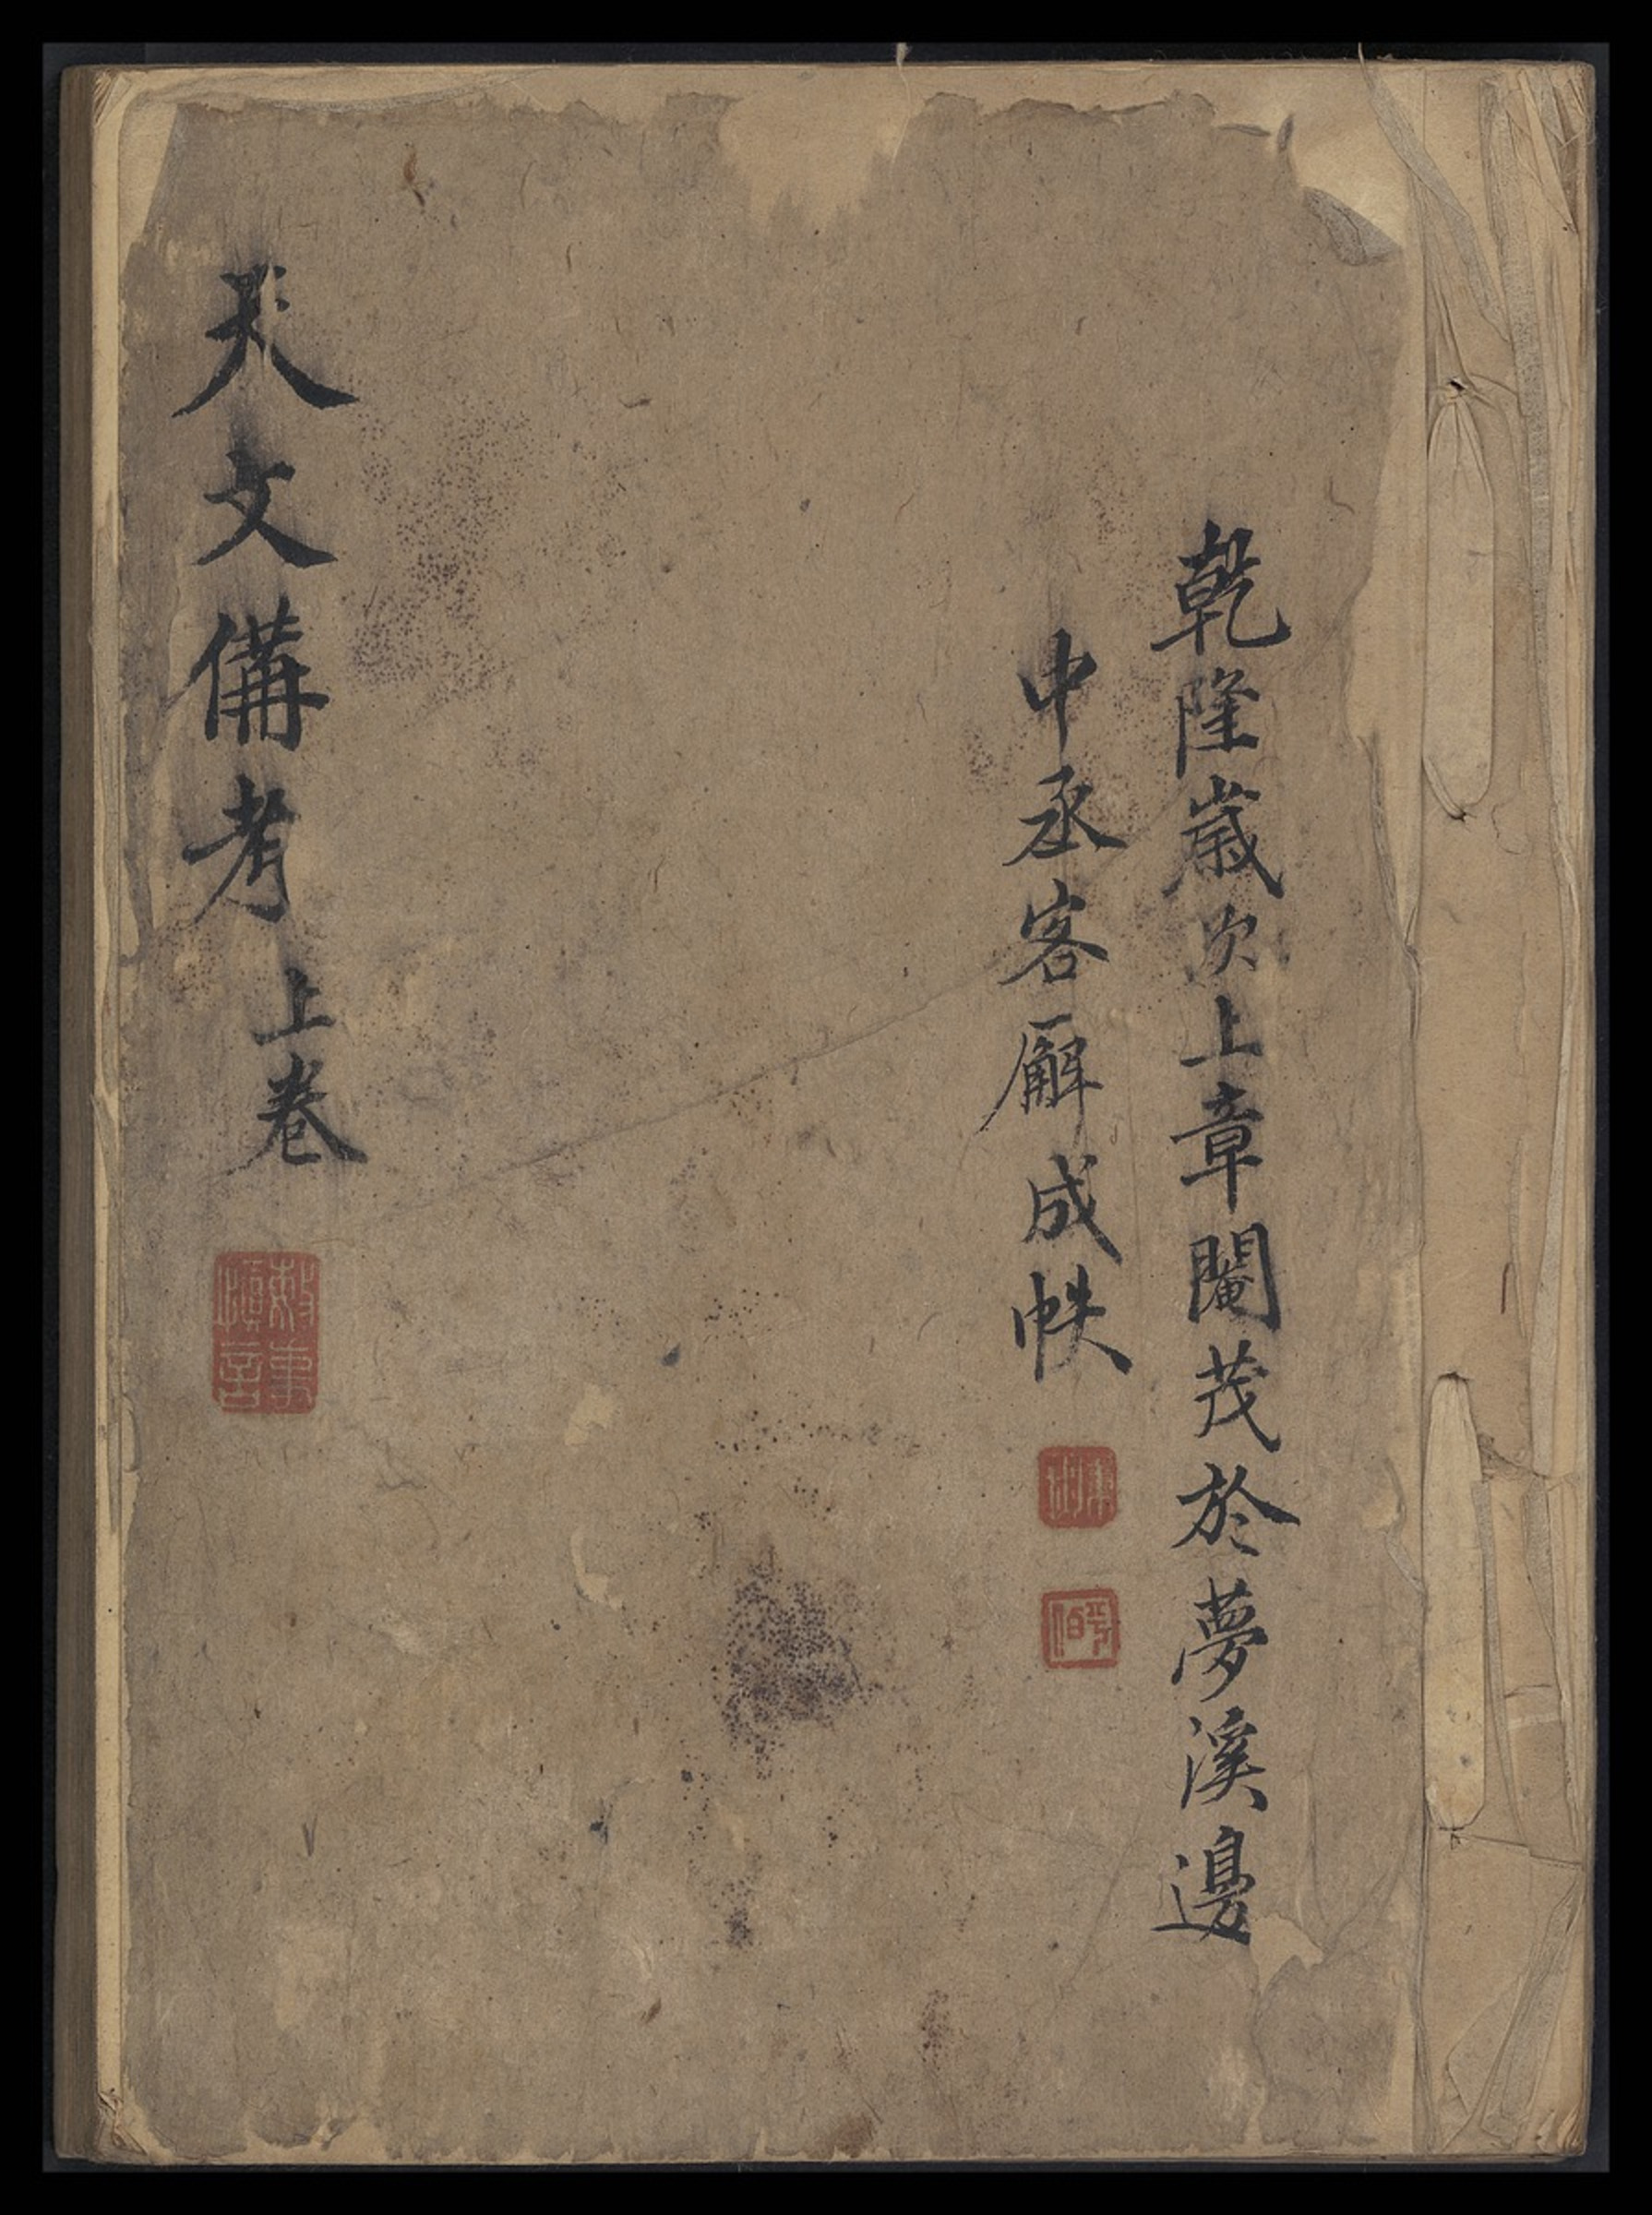 乾隆歲次上章閹茂於夢溪邊
中丞客廨成帙
天文備考
上卷
敕事
慎言